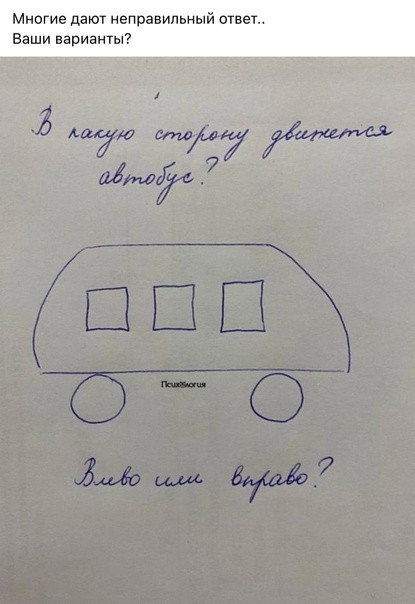 Многие дают неправильный ответ..
Ваши варианты?
В какую сторону движется
автобус?
Психология
Влево или вправо?